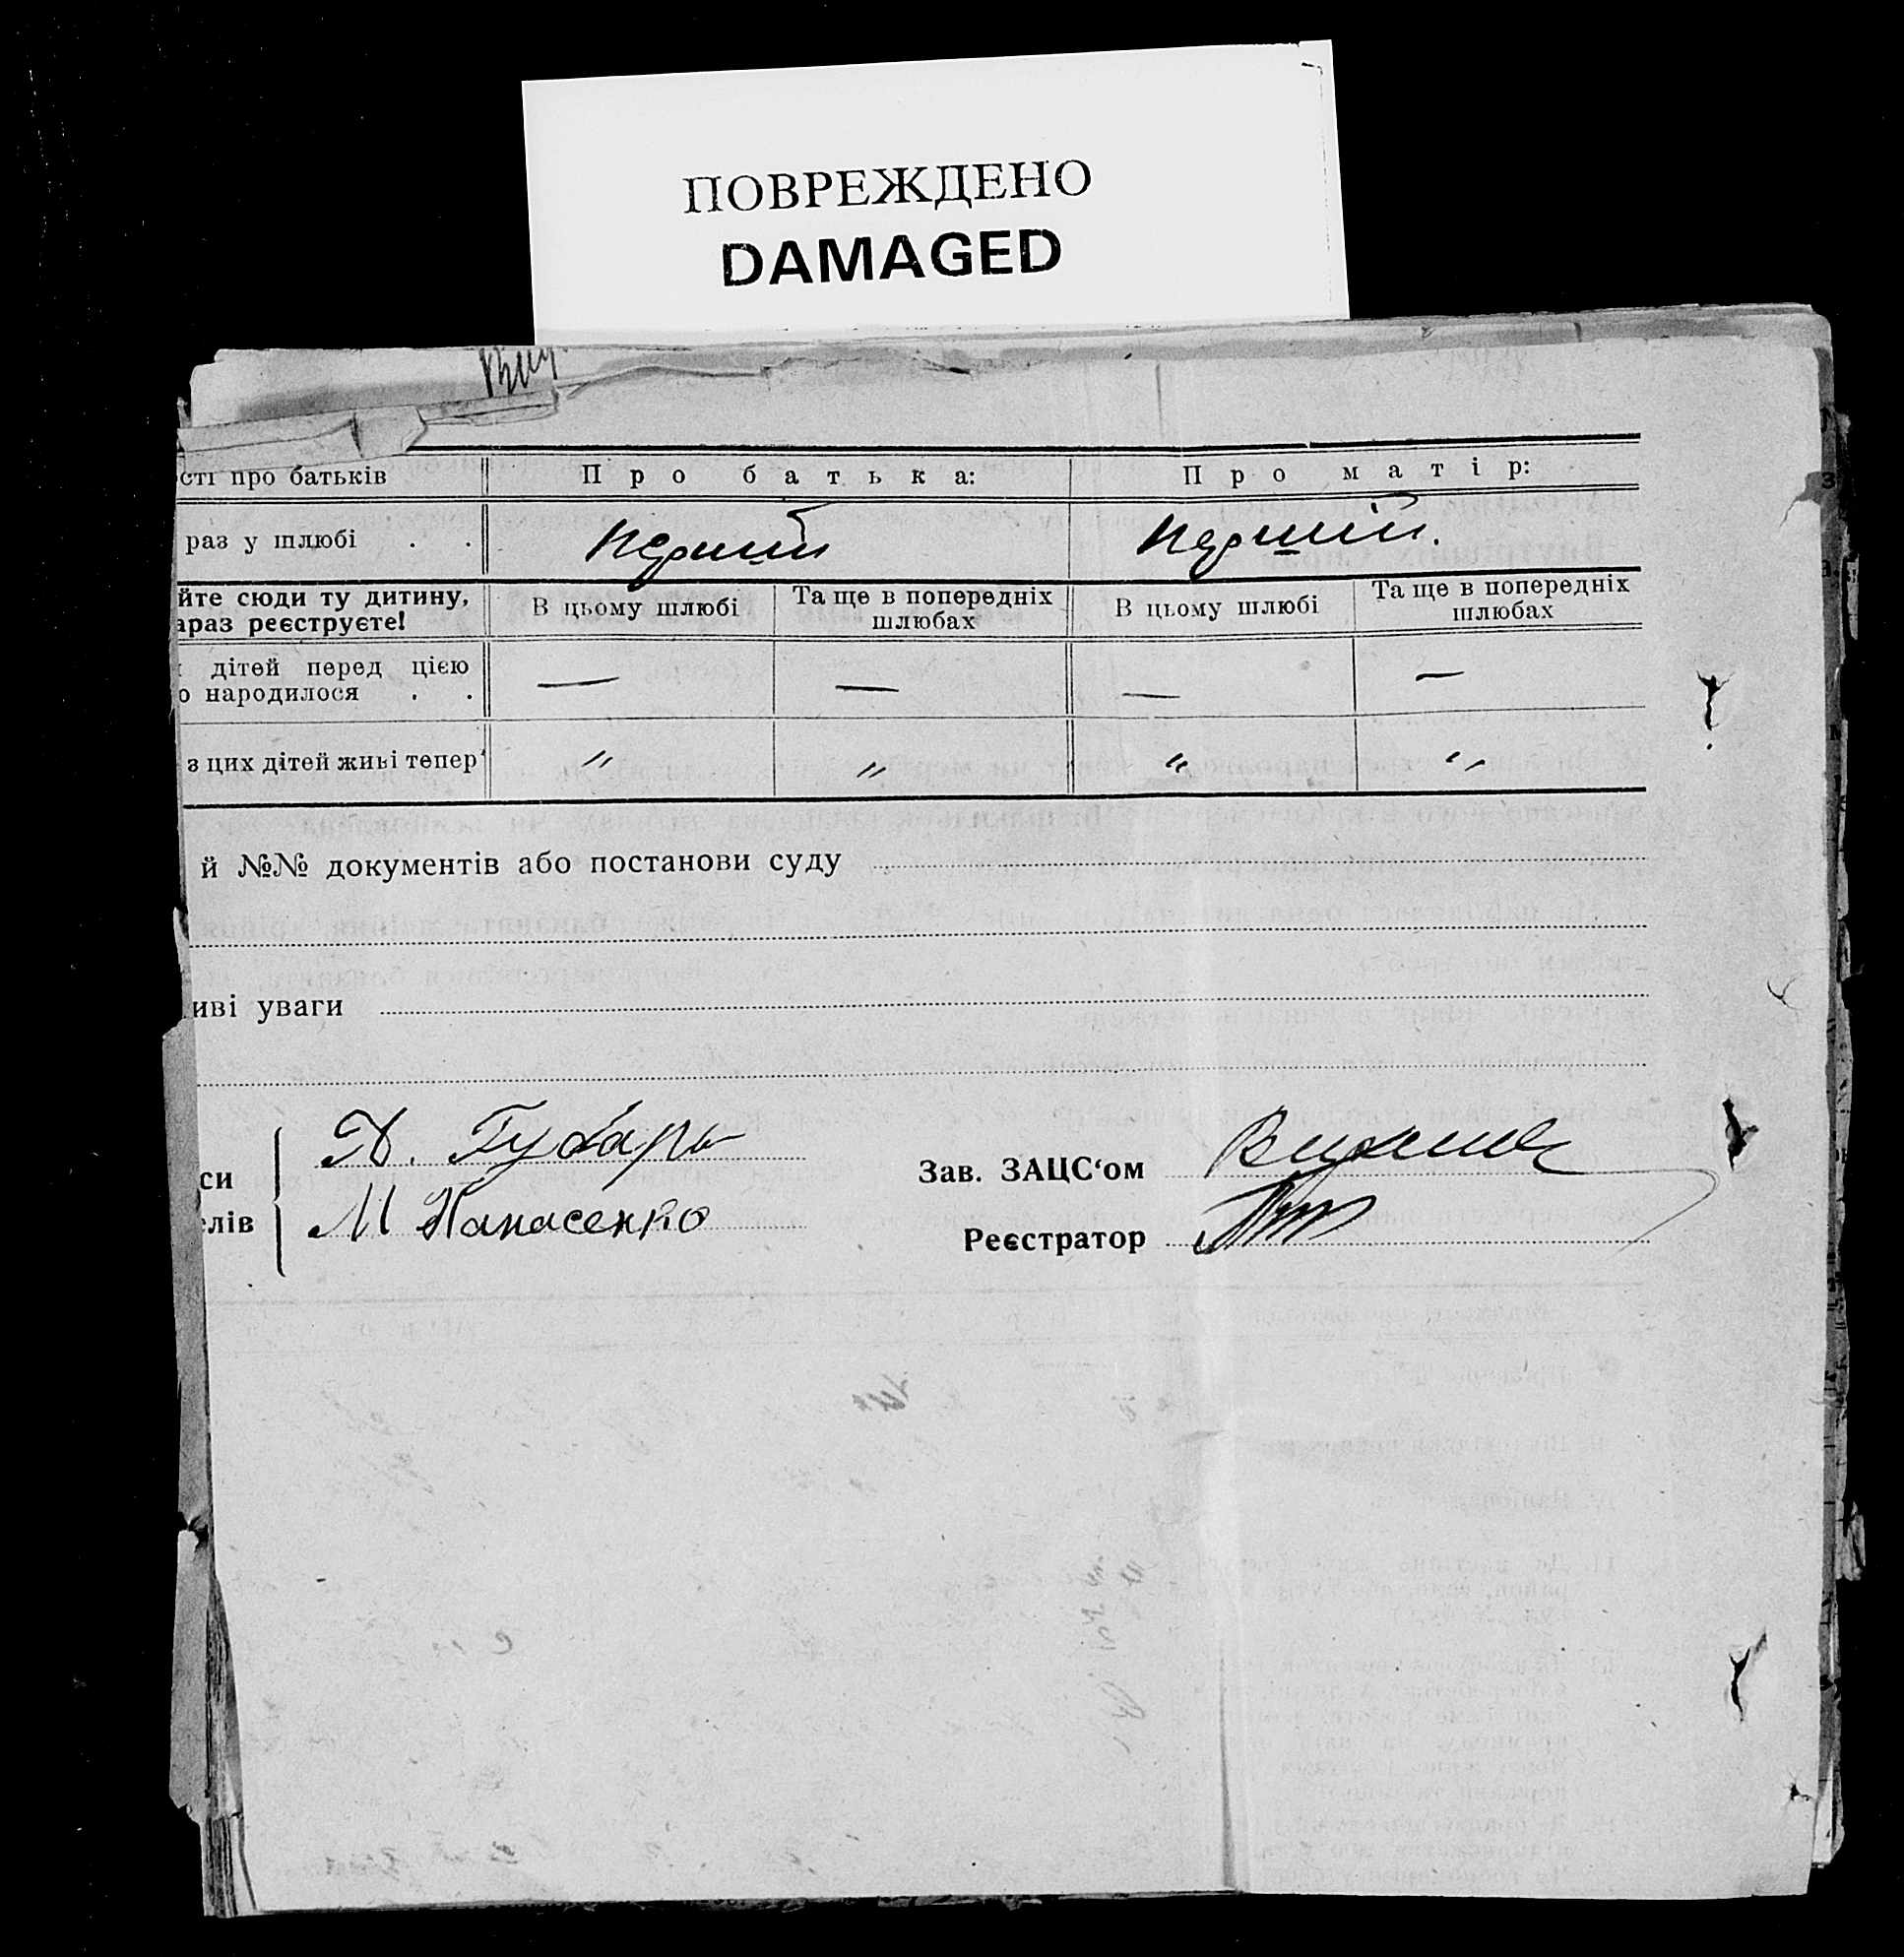 ПОВРЕЖДЕНО
DAMAGED
сті про батьків Про батька: Про матір:
раз у шлюбі . . перший перший.
йте сюди ту дитину, В цьому шлюбі Та ще в попередніх В цьому шлюбі Та ще в попередніх
араз реєструєте! шлюбах шлюбах
дітей перед цією — — — —
о народилося . .
з цих дітей живі тепер " " " "
й №№ документів або постанови суду
иві уваги
си П. Губарь
Зав. ЗАЦС‘ом
елів М Панасенко
Реєстратор